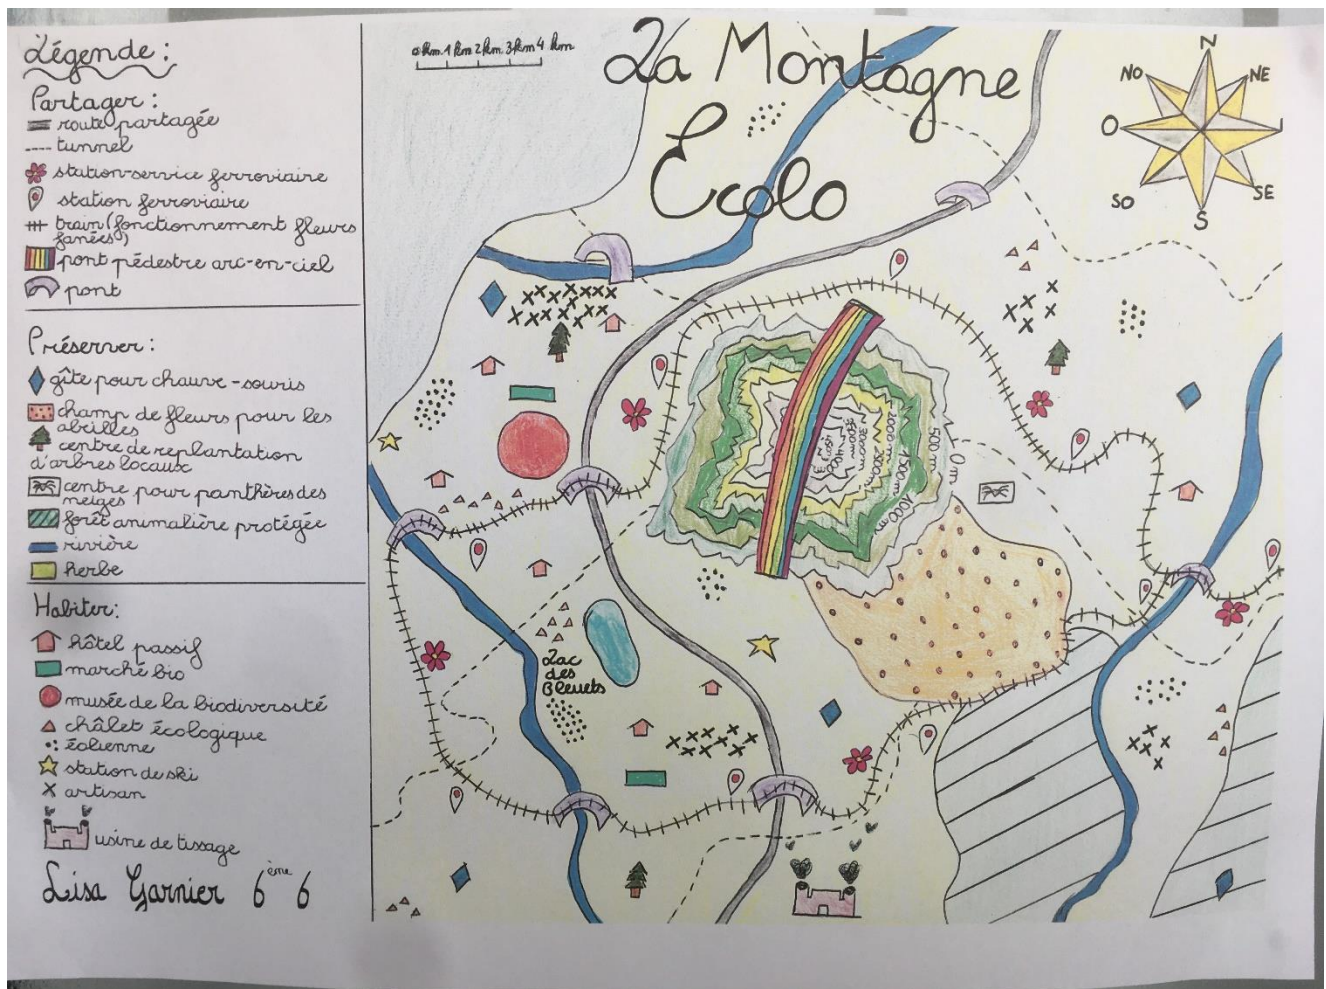 Légende :
Partager :
route partagée
tunnel
station-service ferroviaire
station ferroviaire
train (fonctionnement fleurs
fanées)
pont pédestre arc-en-ciel
pont
Préserver :
gîte pour chauve-souris
champ de fleurs pour les
abeilles
centre de replantation
d'arbres locaux
centre pour panthères des
neiges
forêt animalière protégée
rivière
herbe
Habiter :
hôtel passif
marché bio
musée de la biodiversité
châlet écologique
éolienne
station de ski
artisan
usine de tissage
Lisa Garnier 6ème 6
0 km 1 km 2 km 3 km 4 km
La Montagne
Écolo
N
NO
NE
O
SO
SE
S
0 m
500 m
1000 m
1500 m
2000 m
2500 m
3000 m
Lac
des
Bleuets